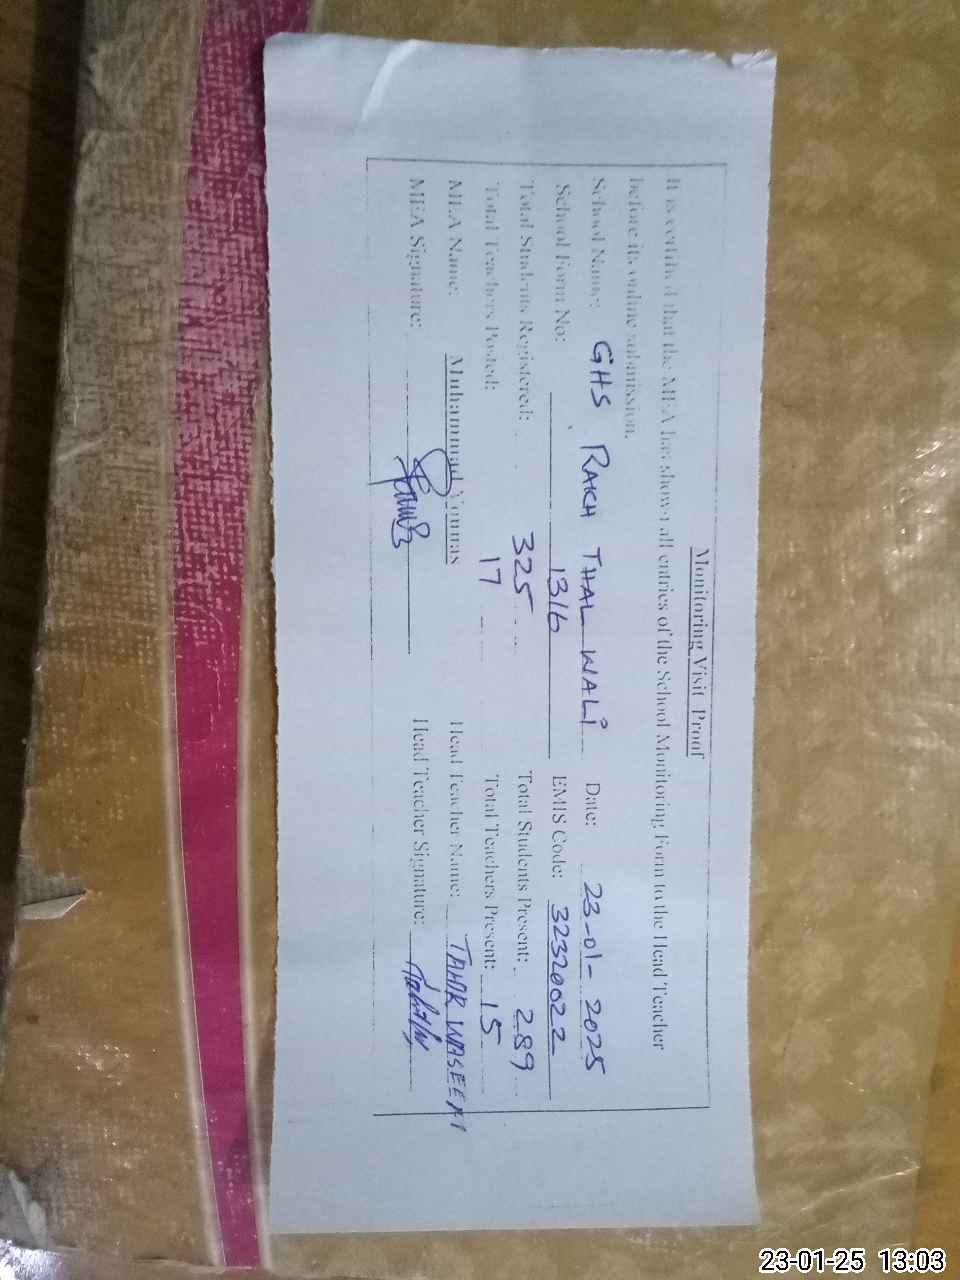 Monitoring Visit Proof
It is certified that the MEA has shown all entries of the School Monitoring Form to the Head Teacher
before its online submission.
School Name: GHS RAKH THAL WALI Date: 23-01-2025
School Form No: 1316 EMIS Code: 32320022
Total Students Registered: 325 Total Students Present: 289
Total Teachers Posted: 17 Total Teachers Present: 15
MEA Name: Muhammad Younas Head Teacher Name: TAHIR WASEEM
MEA Signature: Head Teacher Signature:
23-01-25 13:03